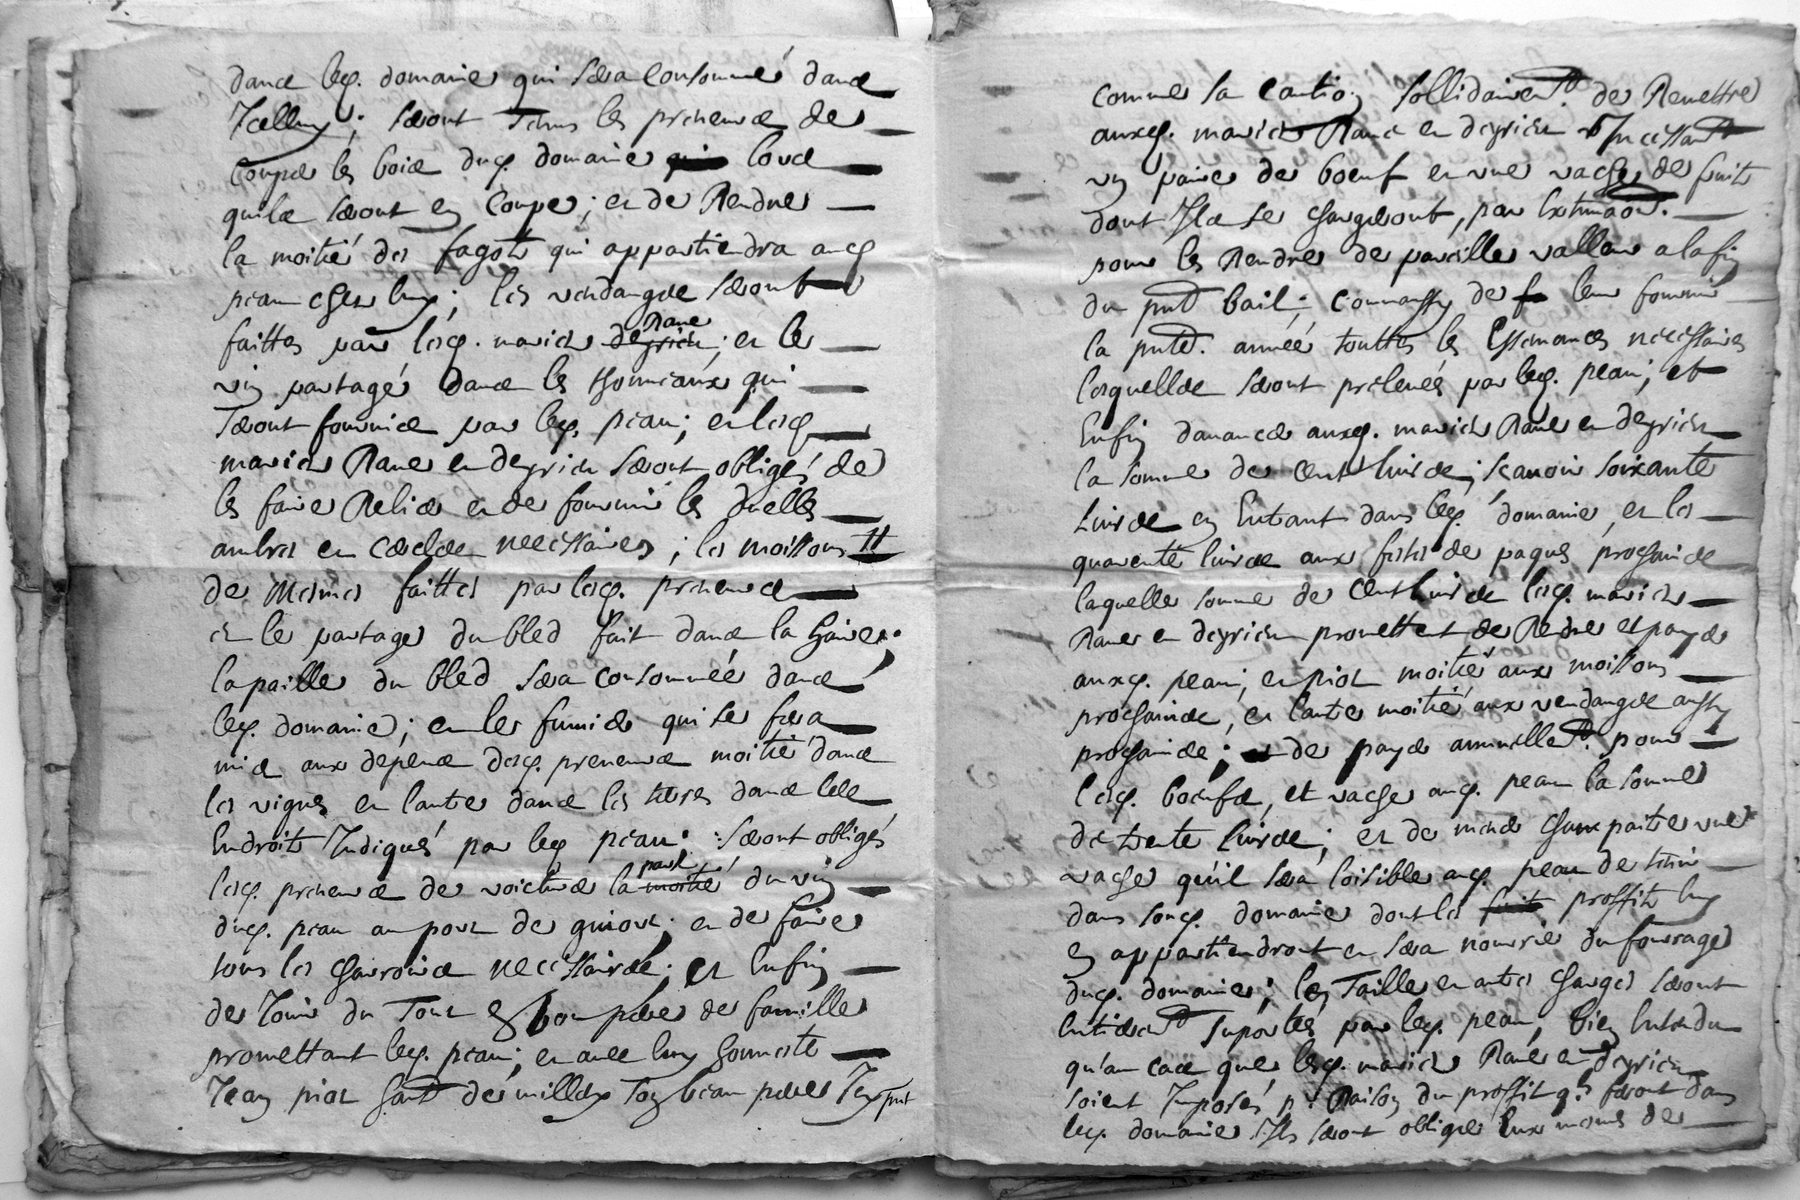 dans led. domaine qui sera consommé dans
Icelluy; seront tenus les preneurs de
couper les bois dud. domaine qui lors
quils seront en coupe; et de Rendre
la moitié des fagots qui appartiendra aud
peau ches luy; les vendanges seront
faittes par lesd. mariés deyrieu Rane; et le
vin partagé dans les thonneaux qui
seront fournis par led. peau; et lesd
mariés Rane et deyrieu seront obligés de
les faire Relier et de fournir les
ambres et cercles necessaires; les moissons
de mesmes faittes par lesd. preneurs
et le partage du bled fait dans la haire;
la paille du bled sera consommée dans
led. domaine; et le fumier qui se fera
mis aux depens desd. preneurs moitié dans
les vignes et lautre dans les terres dans les
Endroits Indiqués par led peau; seront obligés
lesd. preneurs de voicturer la moitié part du vin
dud. peau au port de ; et de faire
tous les charrois necessaires; et Enfin
de Jouir du Tout en bon pere de famille
promettant led. peau; et avec luy honneste
Jean piot hant de milley son beau pere Icy pnt
comme sa caution sollidairemt. de Remettre
auxd. mariés Rane et deyrieu Incessamt
un paire de boeuf et une vache de fruit
dont Ils se chargeront, par Extimaon.
pour les Rendre de pareille valleur a la fin
du pnt bail; comm'aussy de f leur fournir
la pnte. année touttes les Essemances necessaires
lesquelles seront prelevés par led. peau; et
Enfin davancer auxd. mariés Rane et deyrieu
la somme de cent livres; scavoir soixante
Livres en Entrant dans led. domaine, et les
quarente livres aux festes de paques prochaines
laquelle somme de cent livres lesd. mariés
Rane et deyrieu promettent de Rendre et payer
auxd. peau, et piot moitié aux moissons
prochaines, et lautre moitié aux vendanges aussy
prochaines; et de payer annuellemt. pour
lesd. boeufs, et vache aud. peau la somme
de trente livres; et de
vache qu'il sera loisible aud. peau de tenir
dans soud. domaine dont les fruit proffits luy
en appartiendront et sera nourrie du fourrage
dud. domaine; les Tailles et autres charges seront
Entieremt suportés par led. peau, bien Entendu
qu'au cas que lesd. mariés Rane et deyrieu
soient Imposés pr. Raison du proffit qs. feront dans
led. domaine Ils seront obligés Eux mêmes de